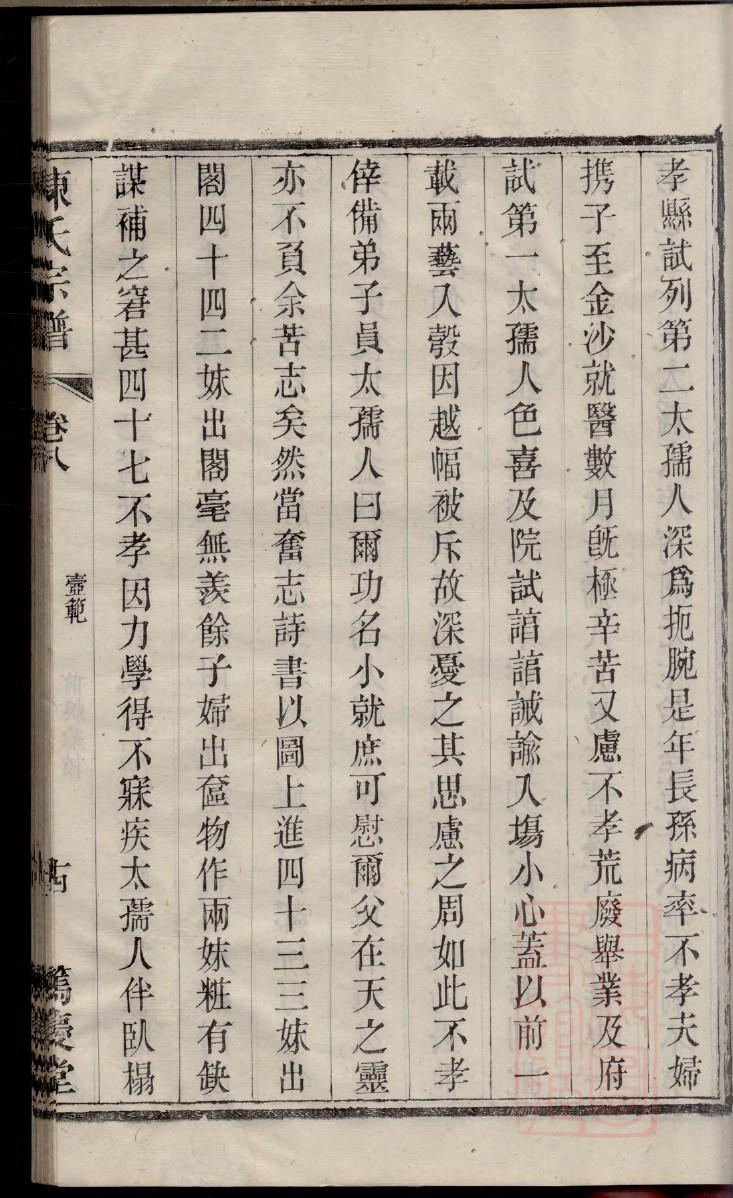 孝縣試列第二太孺人深爲扼腕是年長孫病率不孝夫婦
携子至金沙就醫數月旣極辛苦又慮不孝荒廢舉業及府
試第一太孺人色喜及院試諳諳誡諭入塲小心蓋以前一
載兩藝入彀因越幅被斥故深憂之其思慮之周如此不孝
倖備弟子員太孺人曰爾功名小就庶可慰爾父在天之靈
亦不負余苦志矣然當奮志詩書以圖上進四十三三妹出
閣四十四二妹出閣毫無羨餘子婦出奩物作兩妹粧有缺
謀補之窘甚四十七不孝因力學得不寐疾太孺人伴臥榻
陳氏宗譜
卷八
壼範
十四
篤慶堂